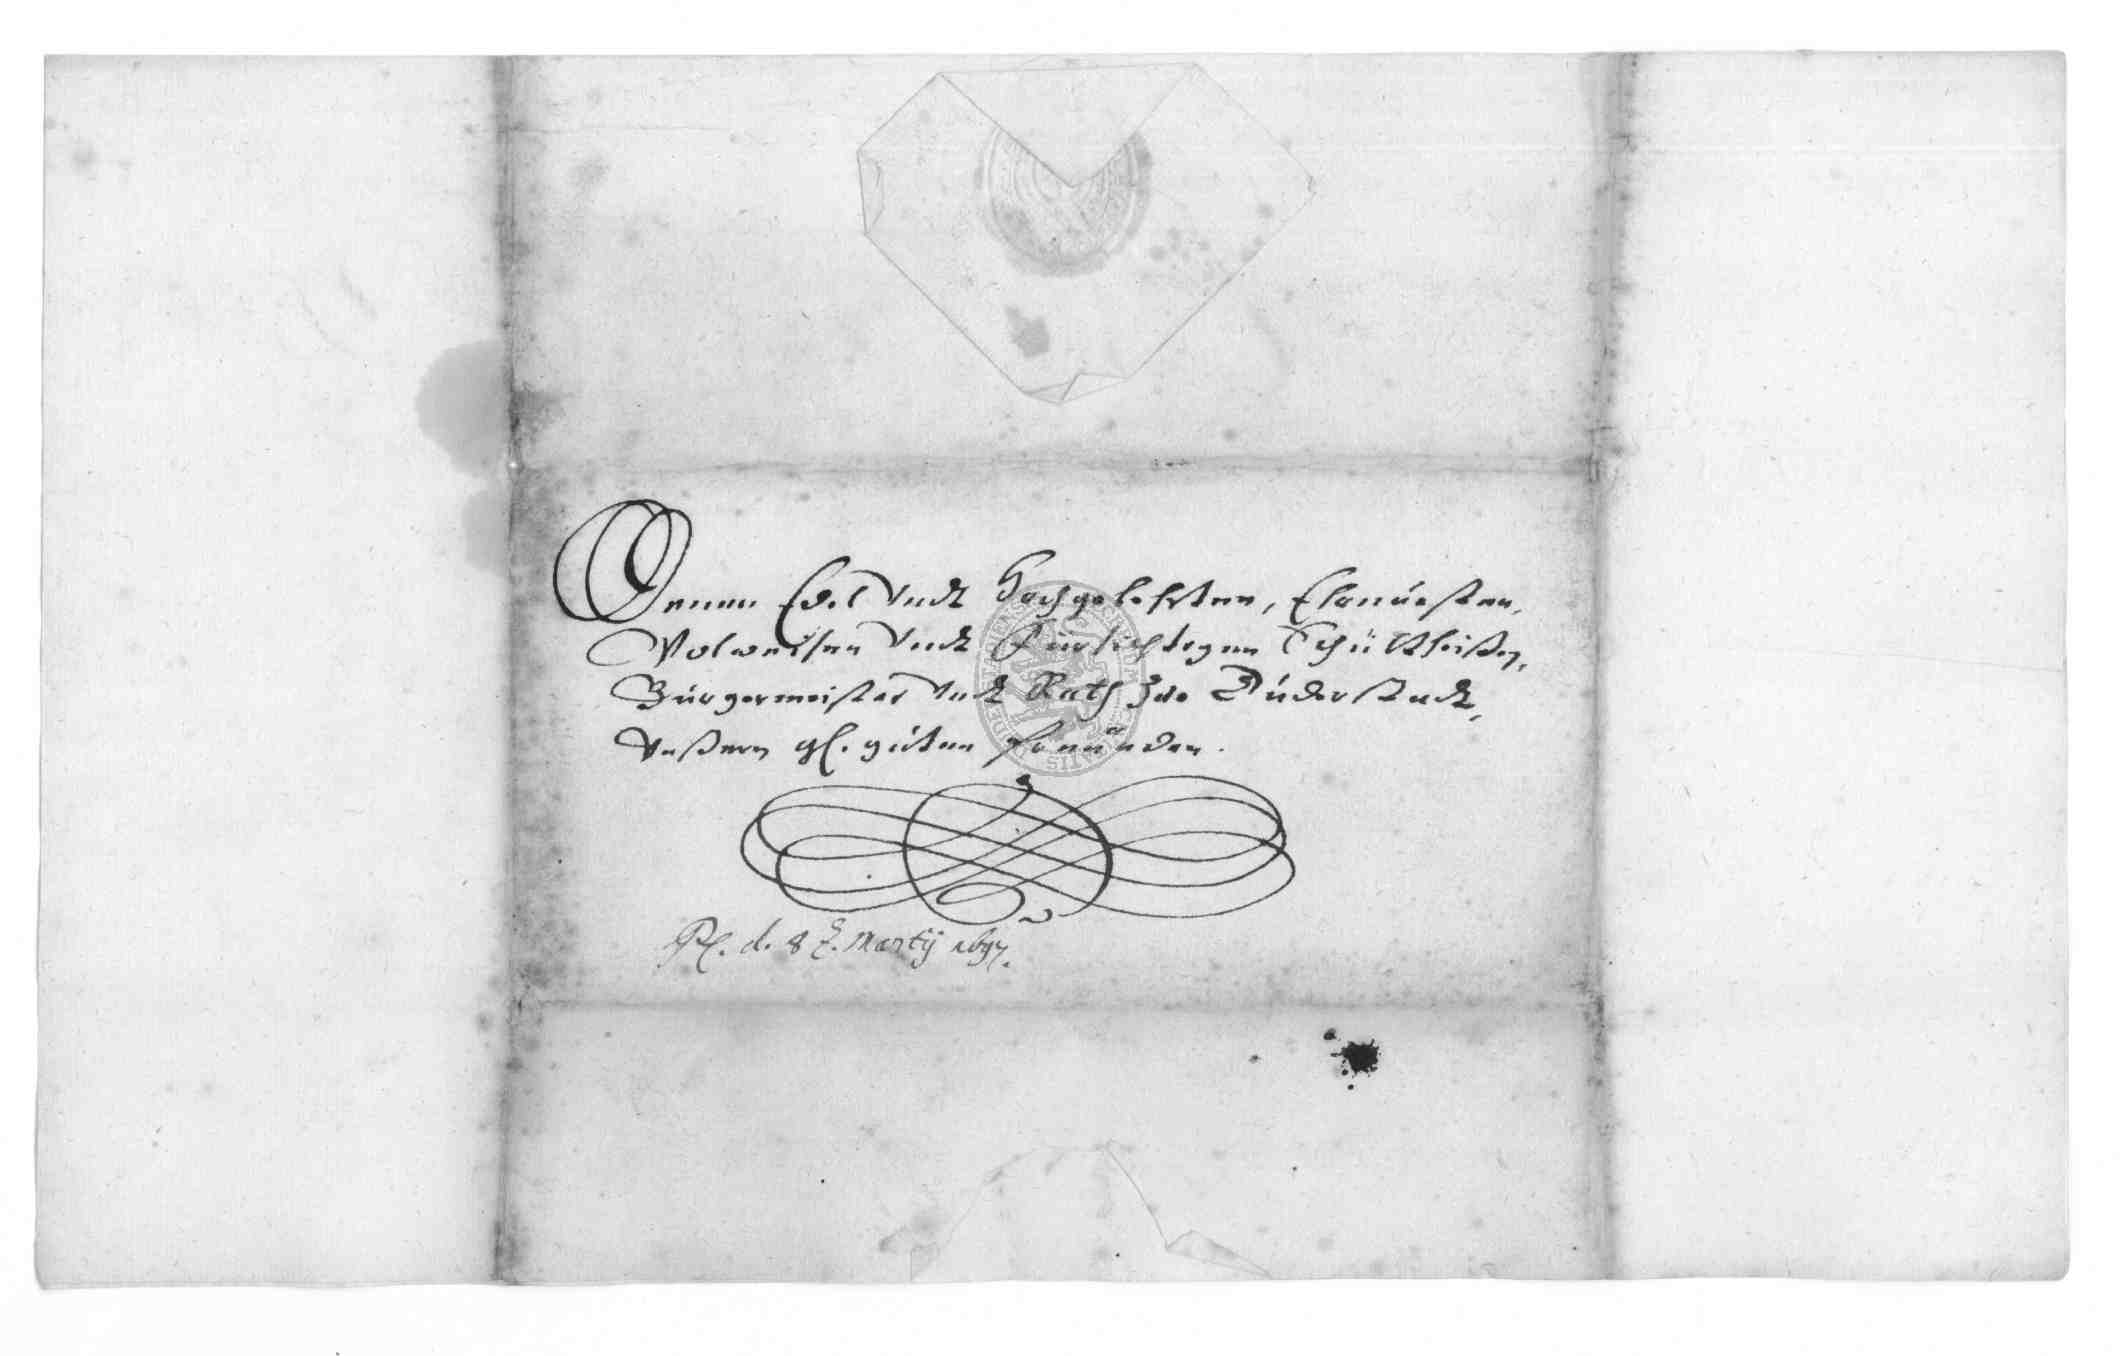 Denen Edel Undt Hochgelehrten, Ehrnúesten,
Wolweisen Undt Fürsichtigen Schültheißen,
Bürgermeister Undt Rath Zue Dúderstadt,
Unßern gl. gúten freünden.
Pl. d. 8 t. Martij 1697.